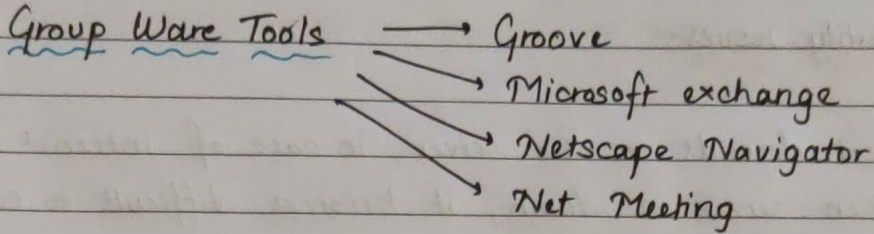 Group Ware Tools → Groove
→ Microsoft exchange
→ Netscape Navigator
→ Net Meeting